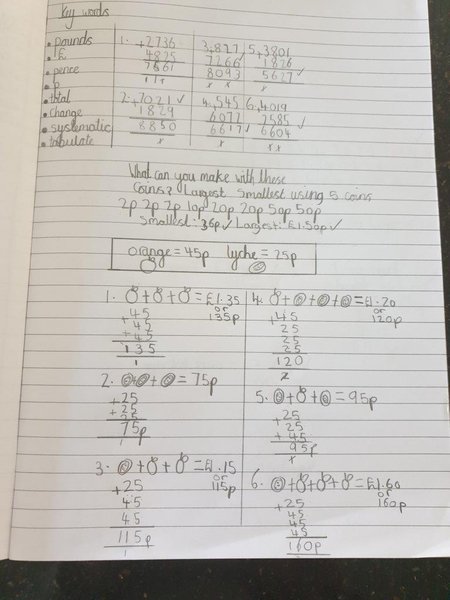 Key words
• Pounds
• £
• pence
• p
• total
• change
• systematic
• tabulate
1. +2736
4825
7561
111
3. +827
7266 ✓
8093
x x
5. +3801
1826
5627 ✓
x
2. +7021 ✓
1829
8850
x
4. +545
6072
6617 ✓
x
6. +4019
2585 ✓
6604
xx
What can you make with these
Coins? Largest Smallest using 5 coins
2p 2p 2p 10p 20p 20p 50p 50p
Smallest: 36p ✓ Largest: £1.50p ✓
orange = 45p lyche = 25p
1. + + = £1.35
or
135p
+45
45
+45
135
1
2. + + = 75p
+25
+25
25
75p
1
3. + + = £1.15
or
115p
+25
45
45
115p
1
4. + + + = £1.20
or
120p
+45
25
25
25
120
x
5. + + = 95p
+25
25
+45
95p
x
6. + + + = £1.60
or
160p
+25
45
45
45
160p